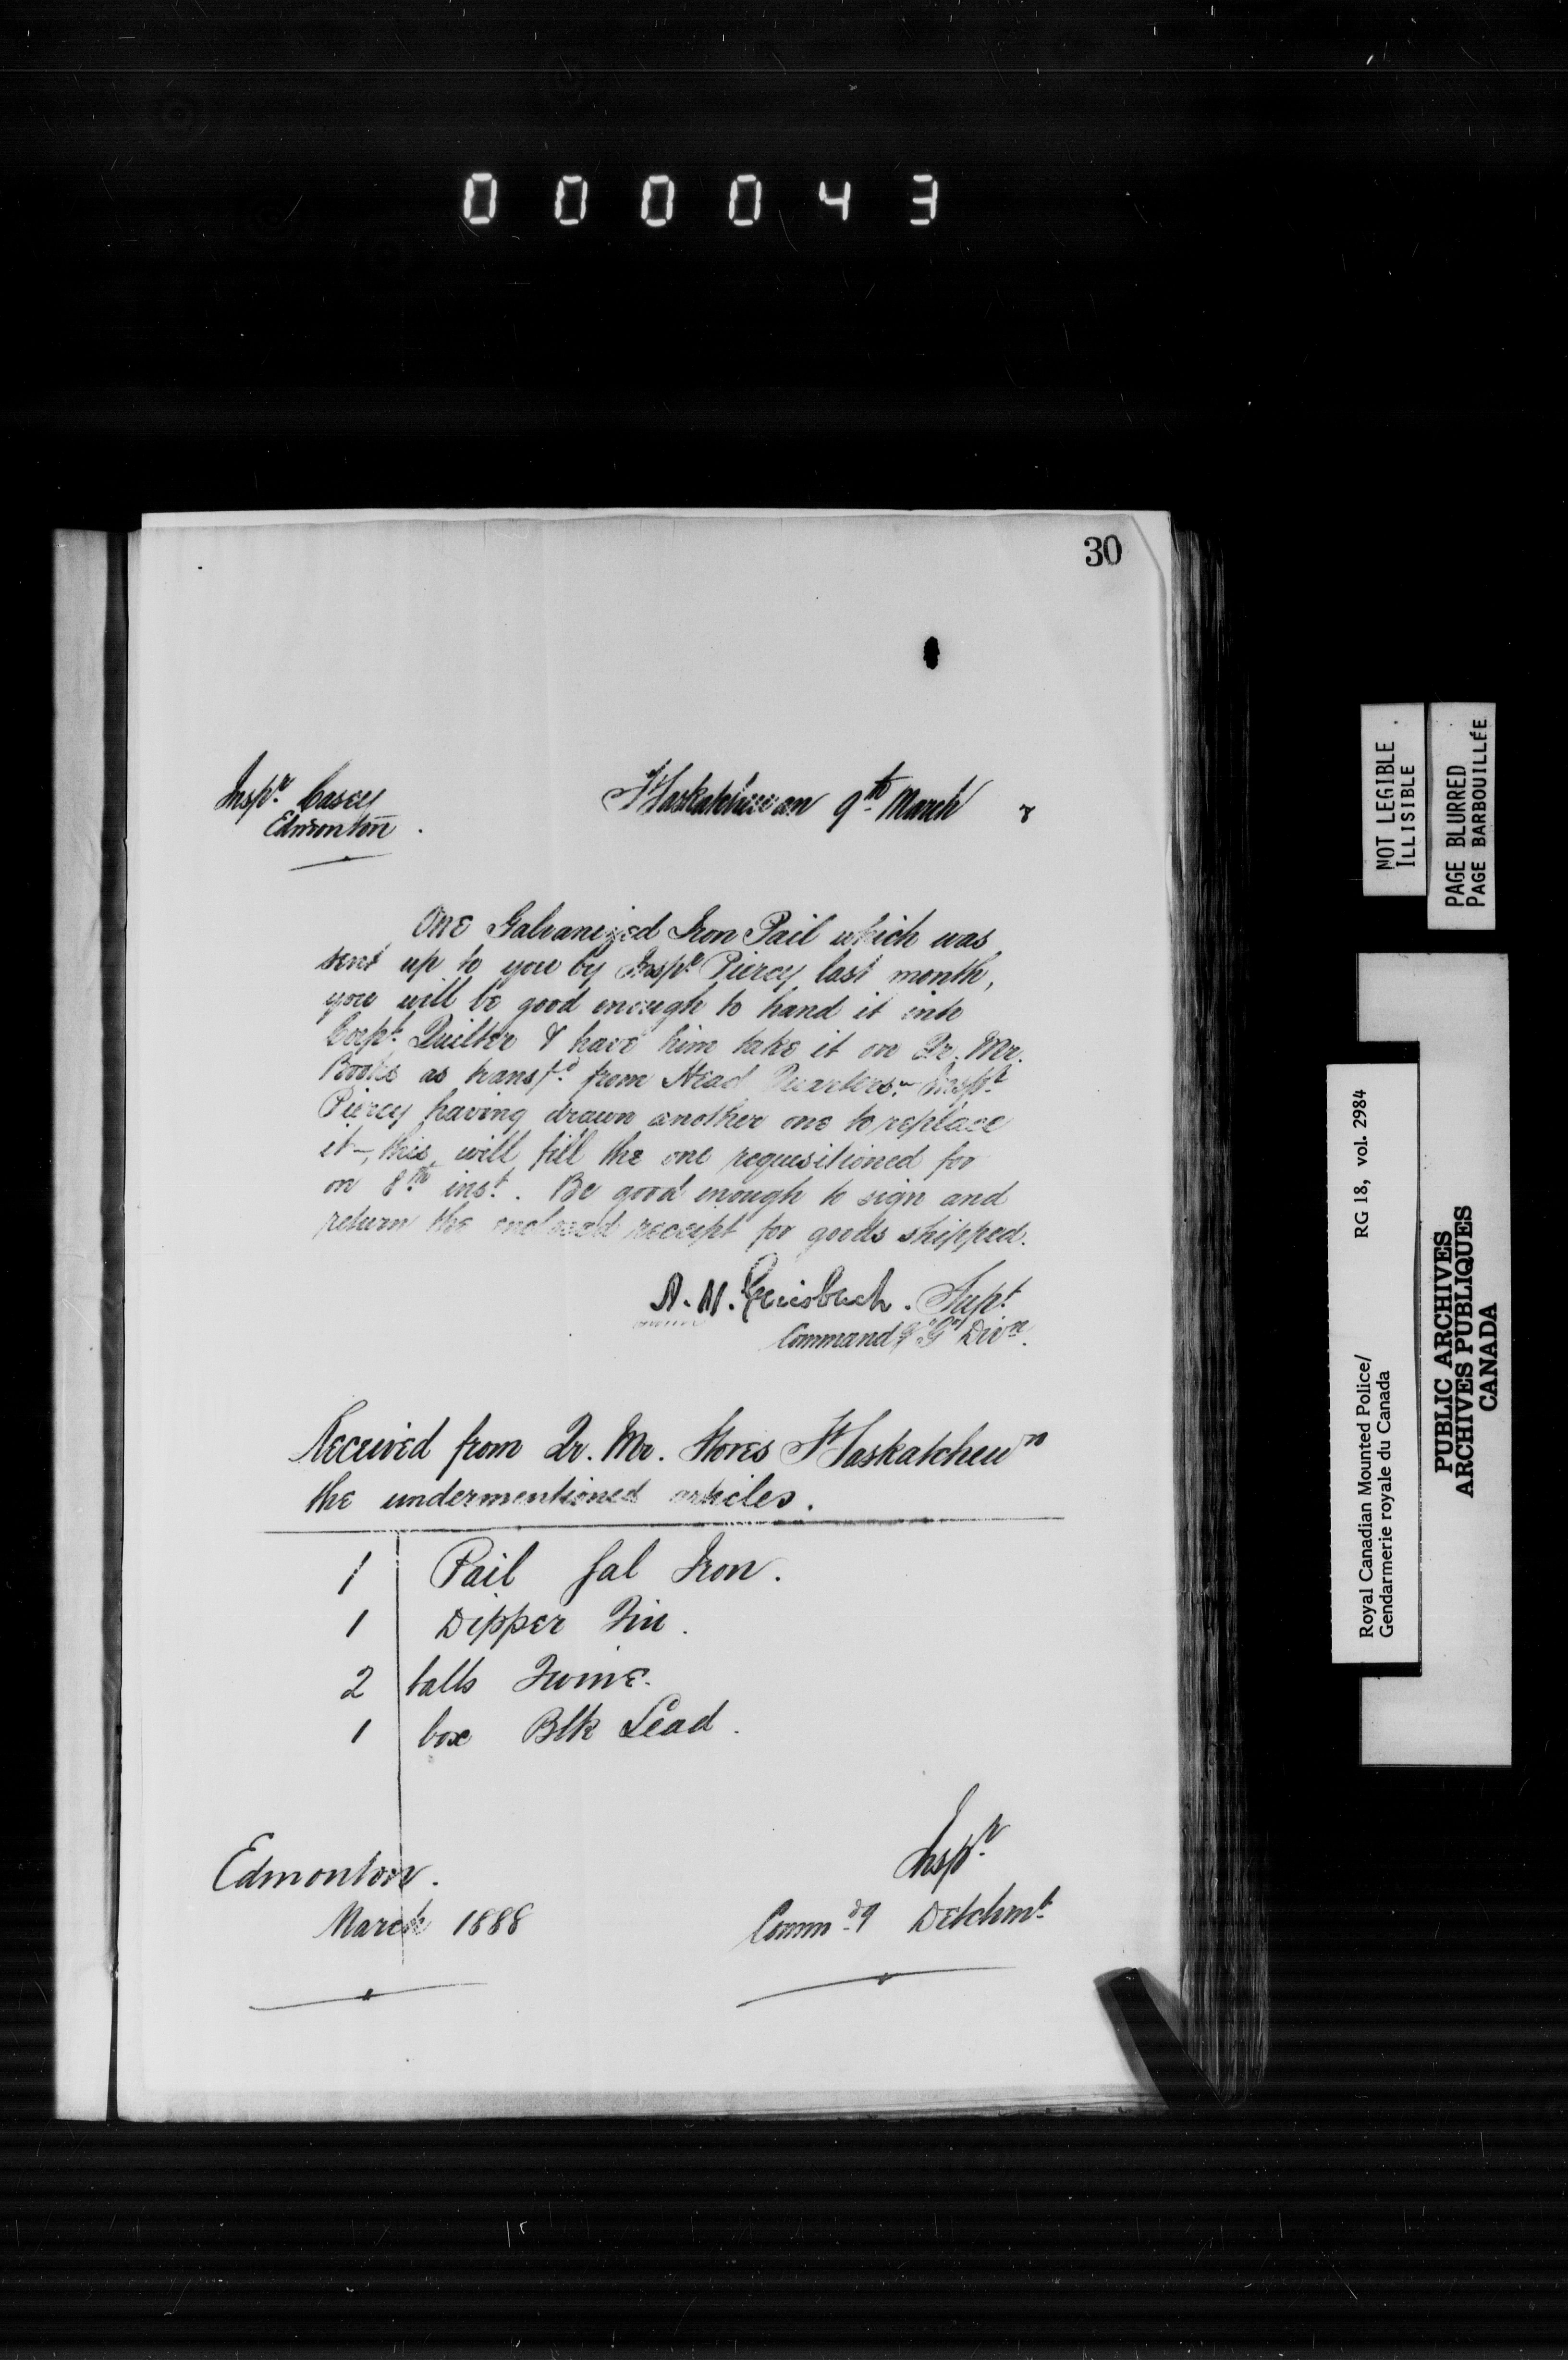 000043
30
Inspr. Casey
Edmonton.
Ft Saskatchewan 9th March 8
One Galvanized Iron Pail which was
sent up to you by Inspr Piercy last month,
you will be good enough to hand it into
Corpl. Quilter & have him take it on Qr. Mr.
Books as transfd. from Head Quarters. Inspr
Piercy having drawn another one to replace
it -, this will fill the one requisitioned for
on 8th inst. Be good enough to sign and
return the enclosed receipt for goods shipped.
A. H. Griesbach. Supt
Commandg "G" Divn.
Received from Qr. Mr. Stores Ft Saskatchewn
the undermentioned articles.
1 Pail Gal Iron.
1 Dipper Tin.
2 balls Twine.
1 box Blk Lead.
Edmonton.
March 1888
Inspr.
Commdg Detchmt.
NOT LEGIBLE
ILLISIBLE
PAGE BLURRED
PAGE BARBOUILLÉE
Royal Canadian Mounted Police/ RG 18, vol. 2984
Gendarmerie royale du Canada
PUBLIC ARCHIVES
ARCHIVES PUBLIQUES
CANADA